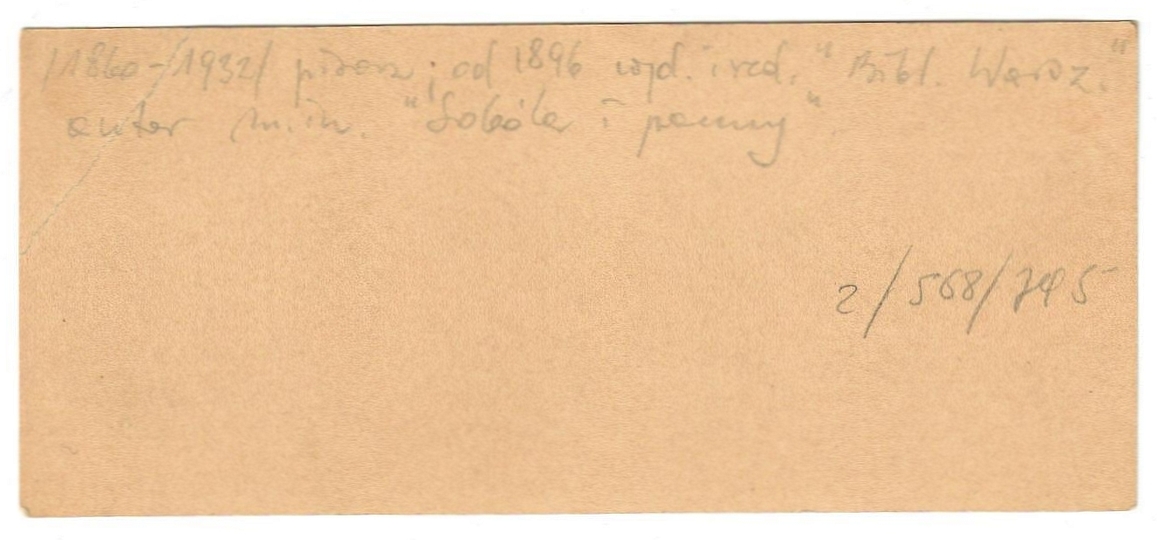 /1860-1932/ pisarz; od 1896 wyd. i red. "Bibl. Warsz."
autor m.in. "Soból i panny".
2/568/745